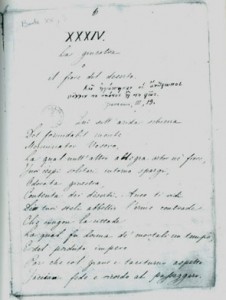 6
XXXIV.
La ginestra
o
il fiore del deserto.
Καὶ ἠγάπησαν οἱ ἄνθρωποι
μᾶλλον τὸ σκότος ἢ τὸ φῶς.
Giovanni, III, 19.
Qui sull'arida schiena
Del formidabil monte
Sterminator Vesevo,
La qual null'altro allegra arbor nè fiore,
Tuoi cespi solitari intorno spargi,
Odorata ginestra,
Contenta dei deserti. Anco ti vidi
De' tuoi steli abbellir l'erme contrade
Che cingon la cittade
La qual fu donna de' mortali un tempo,
E del perduto impero
Par che col grave e taciturno aspetto
Faccian fede e ricordo al passeggero.